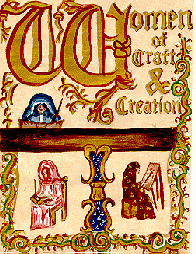 Women
of
Craft
&
Creation